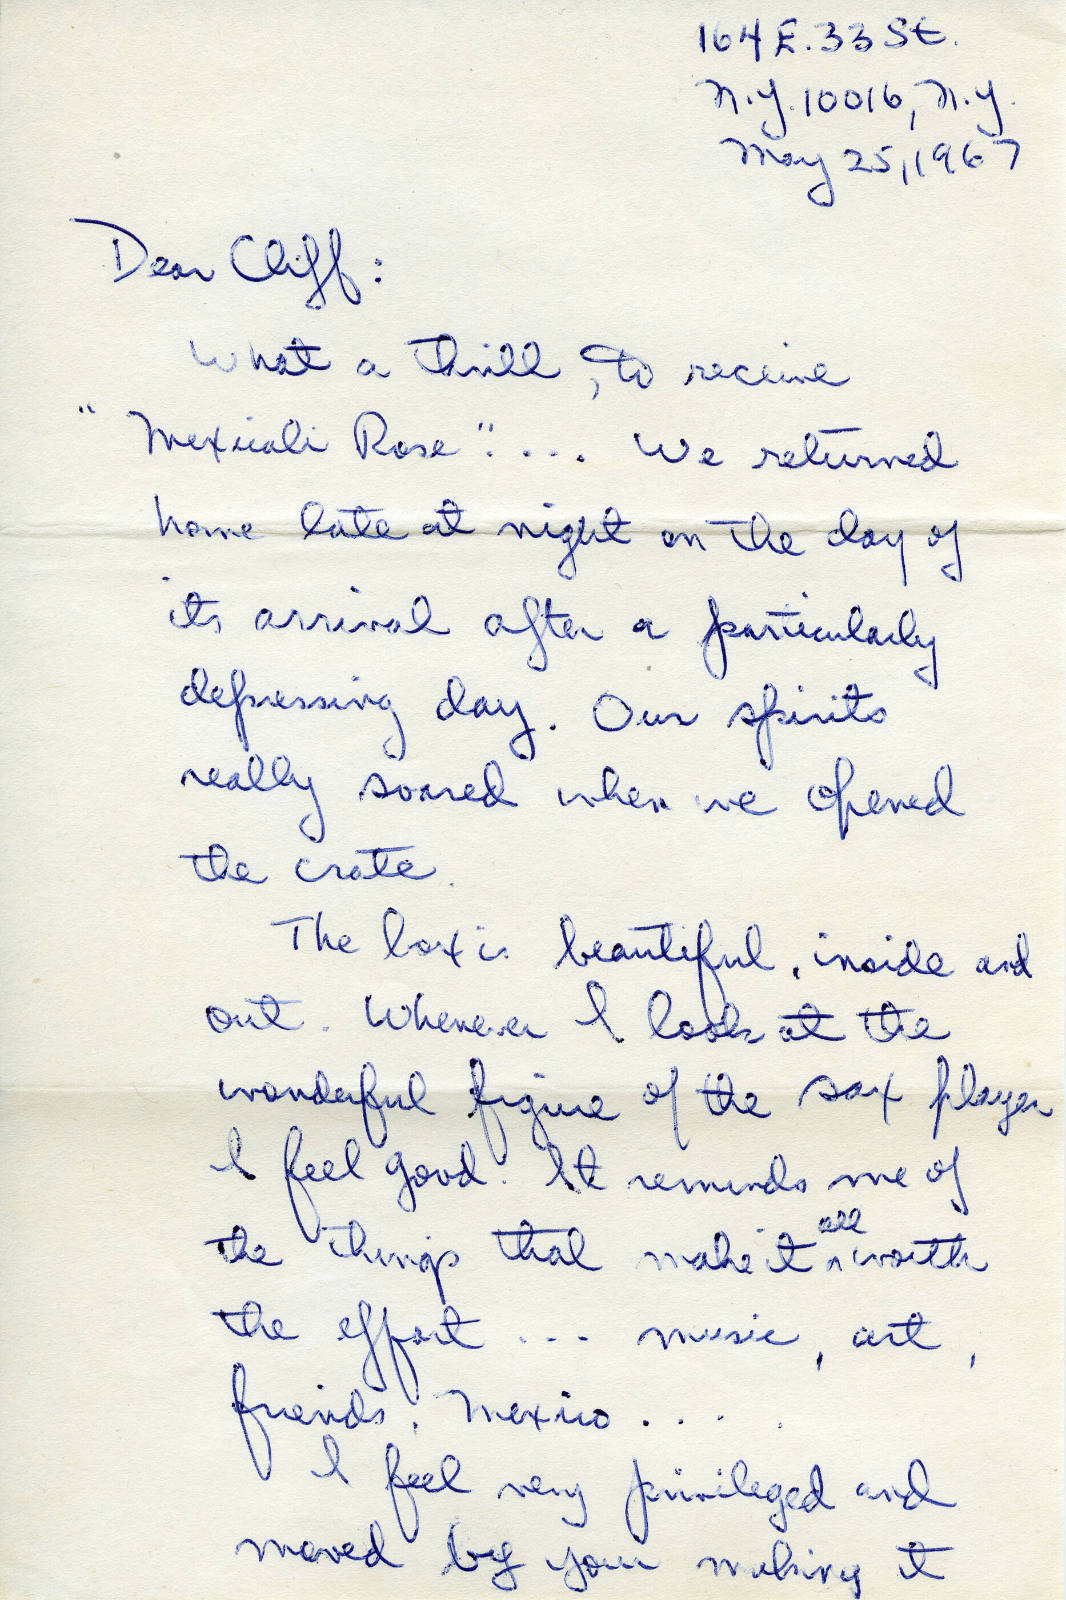 164 E. 33 St.
N.Y. 10016, N.Y.
May 25, 1967
Dear Cliff:
What a thrill, to receive
"Mexicali Rose".... We returned
home late at night on the day of
its arrival after a particularly
depressing day. Our spirits
really soared when we opened
the crate.
The box is beautiful, inside and
out. Whenever I look at the
wonderful figure of the sax player
I feel good. It reminds me of
the things that make it all worth
the effort ... music, art,
friends, Mexico....
I feel very privileged and
moved by your making it